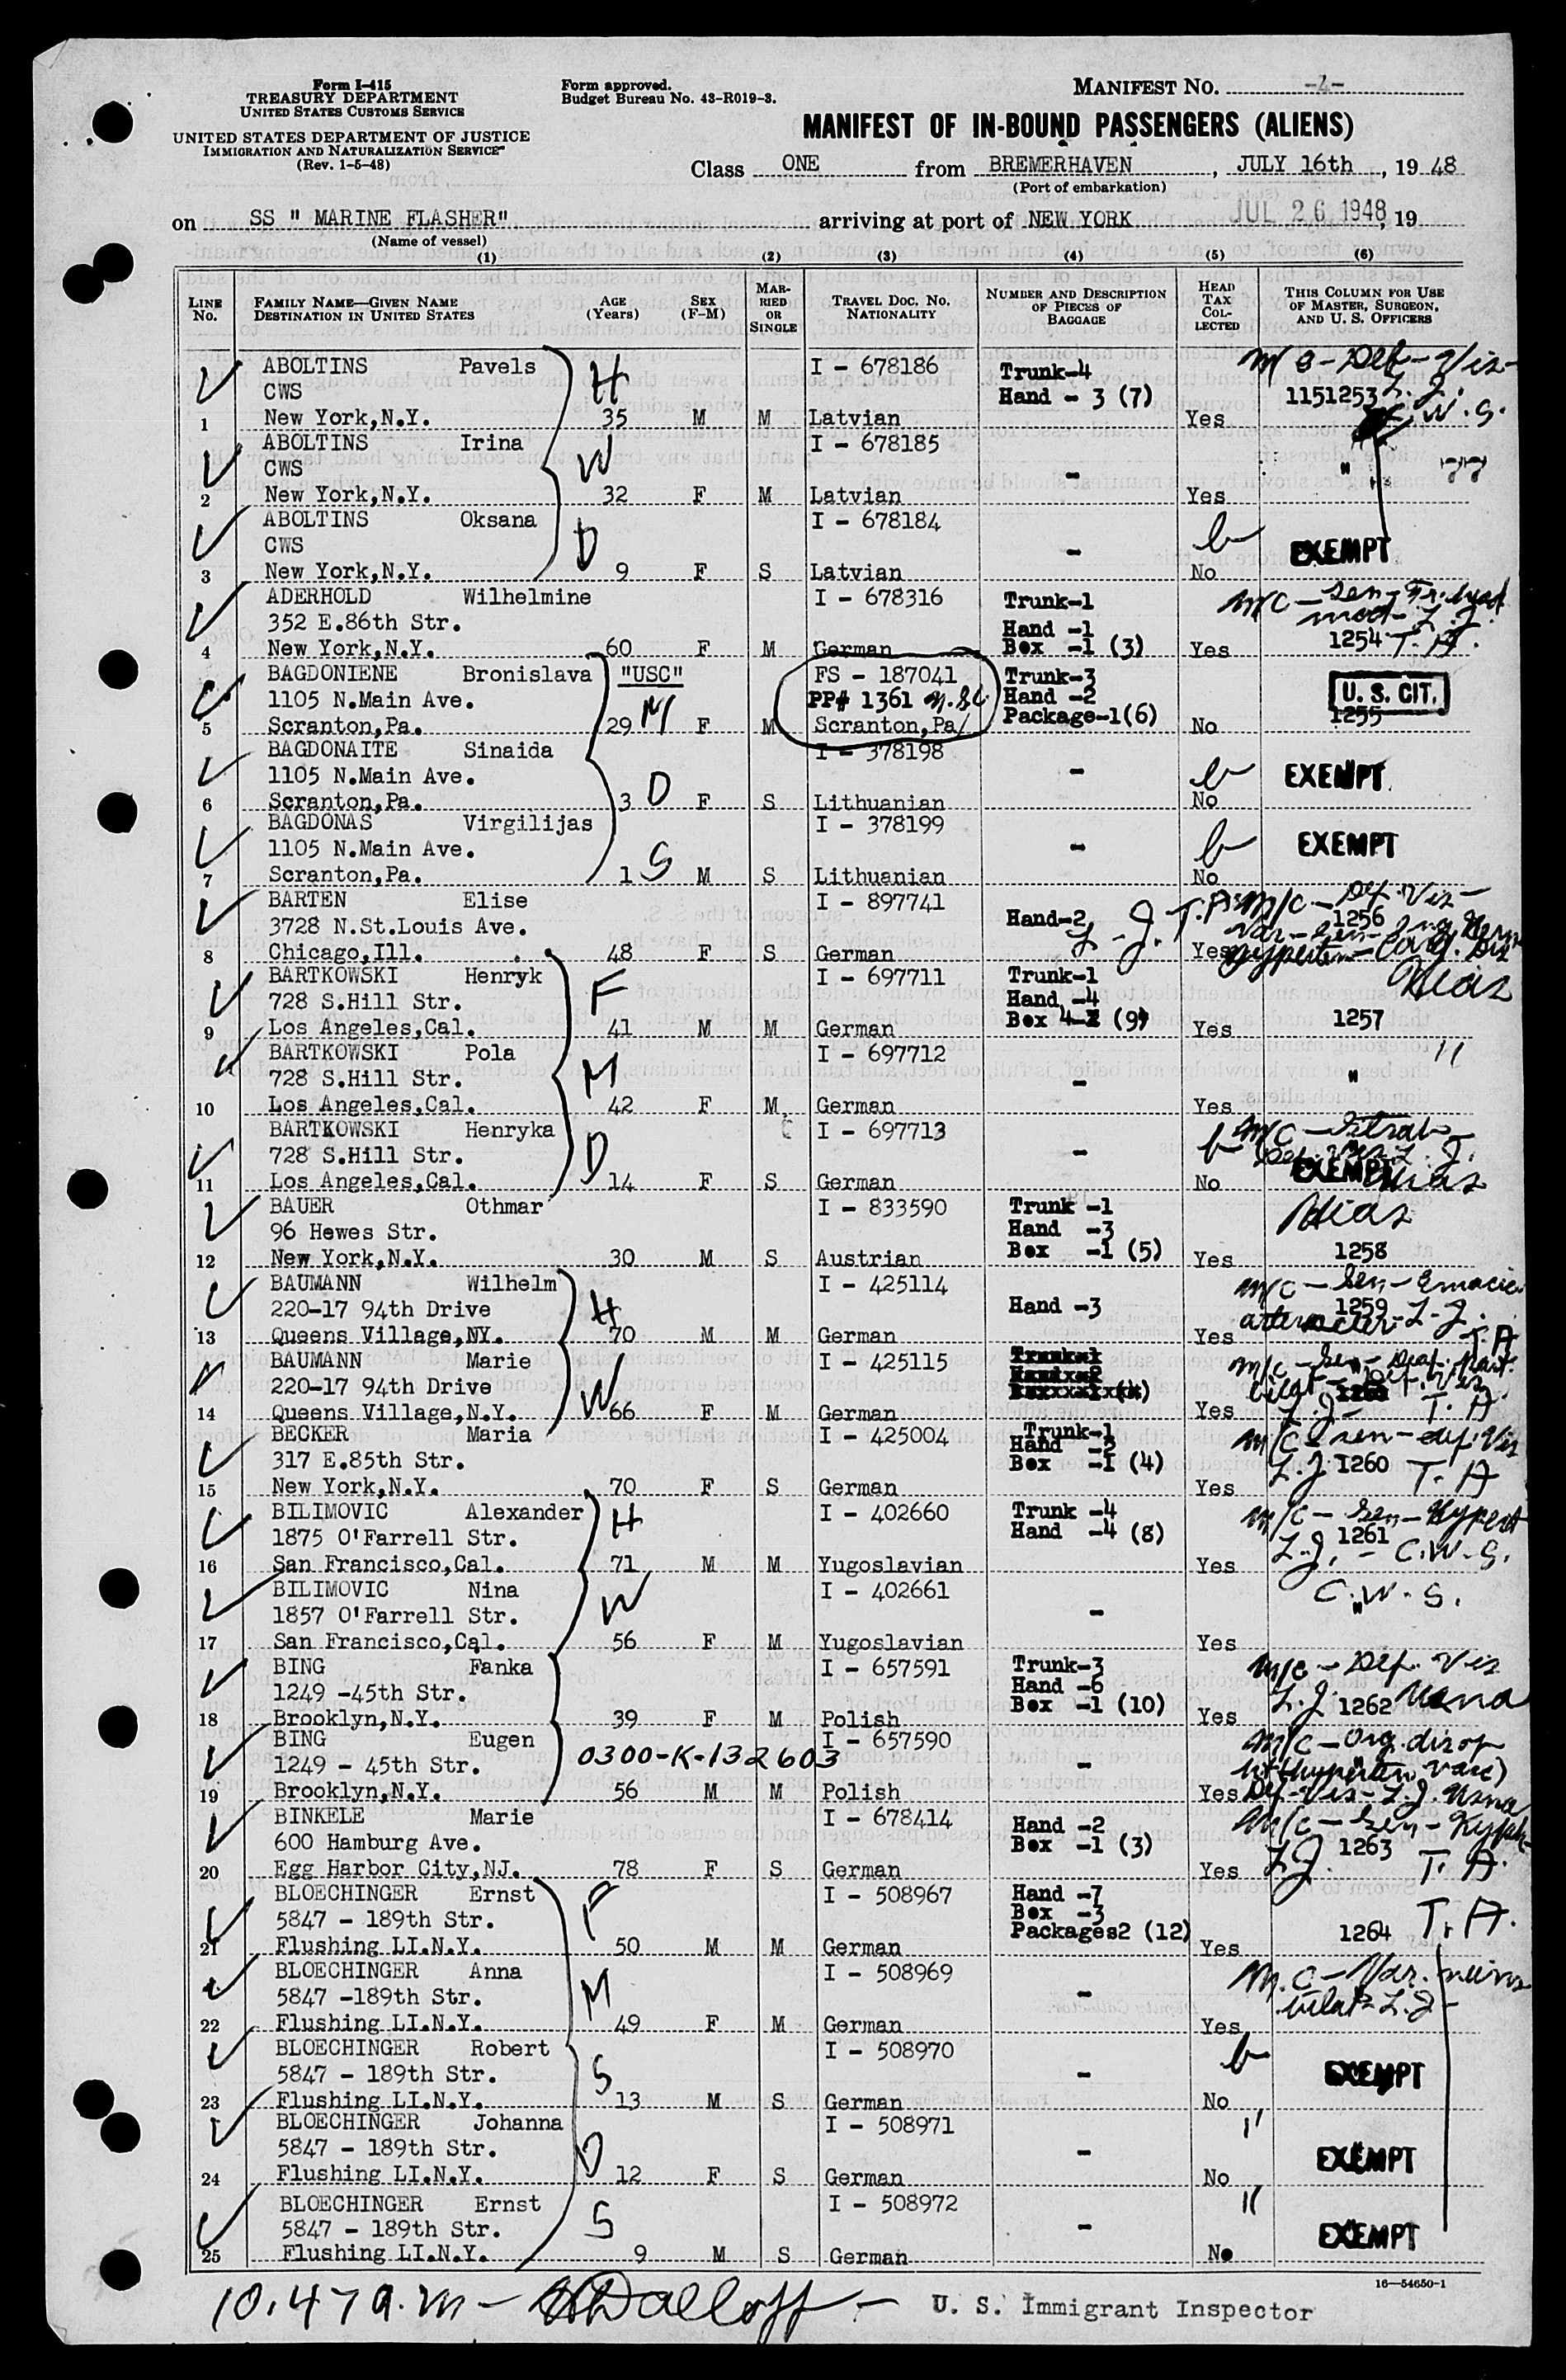 Form I-415
TREASURY DEPARTMENT
UNITED STATES CUSTOMS SERVICE
UNITED STATES DEPARTMENT OF JUSTICE
IMMIGRATION AND NATURALIZATION SERVICE
(Rev. 1-5-48)
Form approved.
Budget Bureau No. 43-R019-3.
MANIFEST NO. -4-
MANIFEST OF IN-BOUND PASSENGERS (ALIENS)
Class ONE from BREMERHAVEN, JULY 16th, 19 48
(Port of embarkation)
on SS " MARINE FLASHER" arriving at port of NEW YORK JUL 26 1948, 19
(Name of vessel)
(1) (2) (3) (4) (5) (6)
LINE No. FAMILY NAME—GIVEN NAME DESTINATION IN UNITED STATES AGE (Years) SEX (F-M) MARRIED OR SINGLE TRAVEL DOC. NO. NATIONALITY NUMBER AND DESCRIPTION OF PIECES OF BAGGAGE HEAD TAX COLLECTED THIS COLUMN FOR USE OF MASTER, SURGEON, AND U. S. OFFICERS
ABOLTINS Pavels H I - 678186 Trunk-4 M/c - Def - Vis -
CWS Hand - 3 (7) 1151253 L.J.
1 New York,N.Y. 35 M M Latvian Yes C.W.S.
ABOLTINS Irina W I - 678185
CWS - "
2 New York,N.Y. 32 F M Latvian Yes
ABOLTINS Oksana D I - 678184
CWS - EXEMPT
3 New York,N.Y. 9 F S Latvian No
ADERHOLD Wilhelmine I - 678316 Trunk-1 M/c - Sen -
352 E.86th Str. Hand -1 L.J.
4 New York,N.Y. 60 F M German Box -1 (3) Yes 1254 T.A.
BAGDONIENE Bronislava "USC" FS - 187041 Trunk-3 U. S. CIT.
1105 N.Main Ave. M PP# 1361 Hand -2
5 Scranton,Pa. 29 F M Scranton,Pa/ Package-1(6) No 1255
BAGDONAITE Sinaida I - 378198
1105 N.Main Ave. D - EXEMPT
6 Scranton,Pa. 3 F S Lithuanian No
BAGDONAS Virgilijas I - 378199
1105 N.Main Ave. S - EXEMPT
7 Scranton,Pa. 1 M S Lithuanian No
BARTEN Elise I - 897741 M/c - Def. Vis -
3728 N.St.Louis Ave. Hand-2 L.J. T.A. 1256
8 Chicago,Ill. 48 F S German Yes
BARTKOWSKI Henryk F I - 697711 Trunk-1 Hias
728 S.Hill Str. Hand -4
9 Los Angeles,Cal. 41 M M German Box (9) Yes 1257
BARTKOWSKI Pola M I - 697712 "
728 S.Hill Str. - "
10 Los Angeles,Cal. 42 F M German Yes
BARTKOWSKI Henryka D I - 697713 M/c
728 S.Hill Str. - L.J. EXEMPT
11 Los Angeles,Cal. 14 F S German No Hias
BAUER Othmar I - 833590 Trunk -1 Hias
96 Hewes Str. Hand -3
12 New York,N.Y. 30 M S Austrian Box -1 (5) Yes 1258
BAUMANN Wilhelm H I - 425114 M/c - Sen -
220-17 94th Drive Hand -3 1259 L.J.
13 Queens Village,NY. 70 M M German Yes T.A
BAUMANN Marie W I - 425115 M/c - Sen -
220-17 94th Drive
14 Queens Village,N.Y. 66 F M German Yes L.J - T. A
BECKER Maria I - 425004 Trunk-1 M/c - Sen - def. Vis
317 E.85th Str. Hand -2 L.J 1260 T. A
15 New York,N.Y. 70 F S German Box -1 (4) Yes
BILIMOVIC Alexander H I - 402660 Trunk -4 M/c - Sen - Hypert
1875 O'Farrell Str. Hand -4 (8) 1261
16 San Francisco,Cal. 71 M M Yugoslavian Yes L.J. - C.W.S.
BILIMOVIC Nina W I - 402661 C.W.S.
1857 O'Farrell Str. - "
17 San Francisco,Cal. 56 F M Yugoslavian Yes
BING Fanka I - 657591 Trunk-3 M/c - Def. Vis
1249 -45th Str. Hand -6 L.J. 1262 Usna
18 Brooklyn,N.Y. 39 F M Polish Box -1 (10) Yes
BING Eugen 0300-K-132603 I - 657590 M/c - Org. dis of
1249 - 45th Str. - ht (hyperten varc)
19 Brooklyn,N.Y. 56 M M Polish Yes Def-Vis- L.J. Usna
BINKELE Marie I - 678414 Hand -2 M/c - Sen - Kyph-
600 Hamburg Ave. Box -1 (3) 1263
20 Egg Harbor City,NJ. 78 F S German Yes L.J. T. A.
BLOECHINGER Ernst F I - 508967 Hand -7
5847 - 189th Str. Box -3 T. A.
21 Flushing LI.N.Y. 50 M M German Packages2 (12) Yes 1264
BLOECHINGER Anna M I - 508969 M.c - Var. veins
5847 -189th Str. - bilat L.J -
22 Flushing LI.N.Y. 49 F M German Yes
BLOECHINGER Robert S I - 508970
5847 - 189th Str. - EXEMPT
23 Flushing LI.N.Y. 13 M S German No
BLOECHINGER Johanna D I - 508971 "
5847 - 189th Str. - EXEMPT
24 Flushing LI.N.Y. 12 F S German No
BLOECHINGER Ernst S I - 508972 "
5847 - 189th Str. - EXEMPT
25 Flushing LI.N.Y. 9 M S German No
16—54650-1
10.47 a.m - U. S. Immigrant Inspector